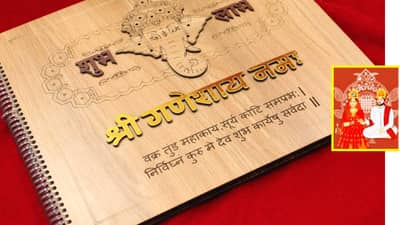 शुभ
लाभ
श्री गणेशाय नमः
वक्र तुंड महाकाय सूर्य कोटि समप्रभः।
निर्विघ्न कुरु मे देव शुभ कार्येषु सर्वदा ॥